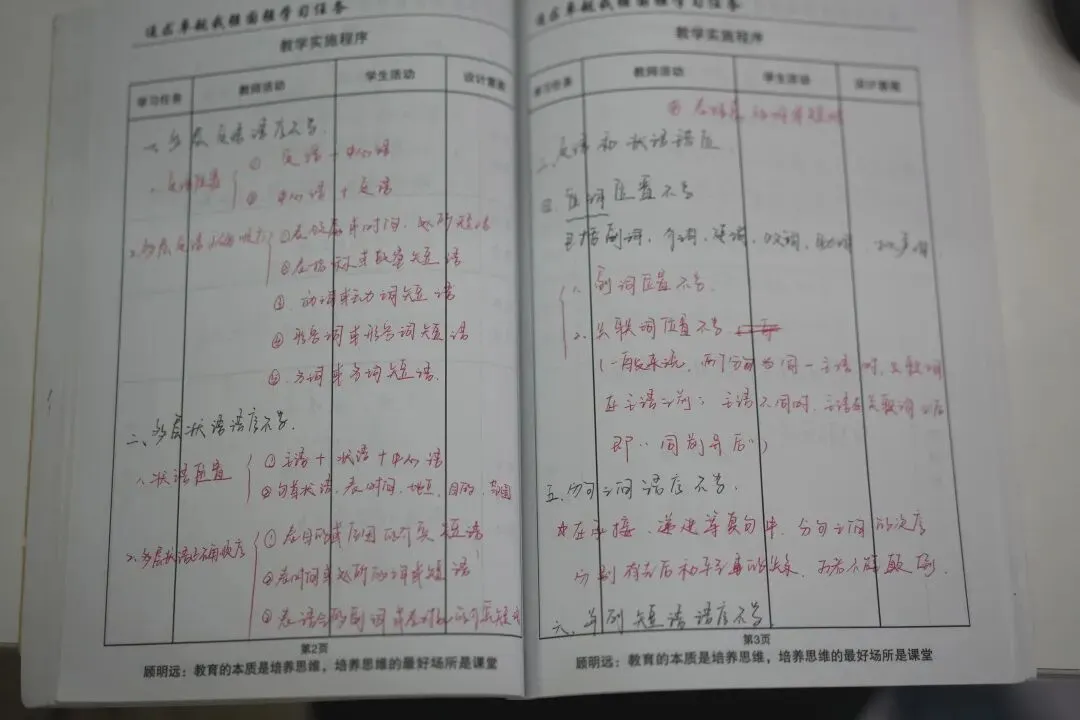 教学实施程序
学习任务 教师活动 学生活动 设计意图
一、多层定语语序不当.
1.定语位置 ① 定语+中心语
② 中心语+定语
2.多层定语正确顺序 ①表领属或时间、处所短语
②表指称或数量短语
③ 动词或动词短语
④ 形容词或形容词短语
⑤ 名词或名词短语.
二、多层状语语序不当.
1.状语位置 ①主语+状语+中心语
②句首状语,表时间、地点、目的、范围
2.多层状语正确顺序 ①表目的或原因的介宾短语
②表时间或处所的
③表语气的副词或表对象的介宾短语
第2页
顾明远:教育的本质是培养思维,培养思维的最好场所是课堂
教学实施程序
学习任务 教师活动 学生活动 设计意图
三、定语和状语错位
四.虚词位置不当
包括副词、介词、连词、
1、副词位置不当.
2.关联词位置不当
(一般来说,两个分句为同一主语时,关联词
在主语之前;主语不同时,主语在关联词之后
即“同前异后”)
五.分句之间语序不当.
*在承接、递进等复句中,分句之间的次序
分别有先后和平列 的关系,不能颠倒.
六、并列短语语序不当
第3页
顾明远:教育的本质是培养思维,培养思维的最好场所是课堂